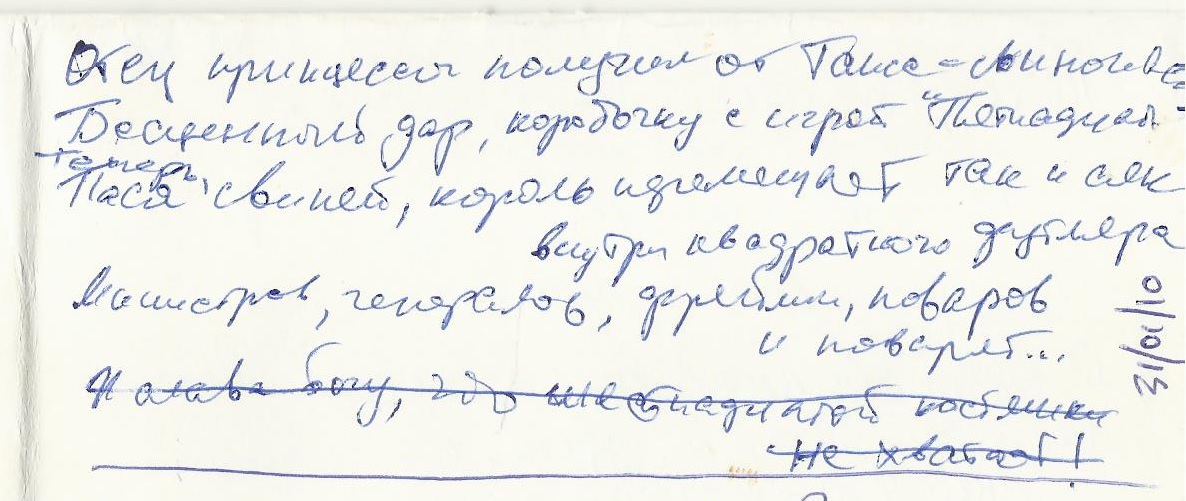 Отец принцессы получил от Ганса-свинопаса
Бесценный дар, коробочку с игрой "Пятнадцать"
теперь
Пася свиней, король перемещает так и сяк
внутри квадратного футляра
Министров, генералов, фрейлин, поваров
и поварят...
И слава богу, что шестнадцатой костяшки
не хватает!
31/01/10